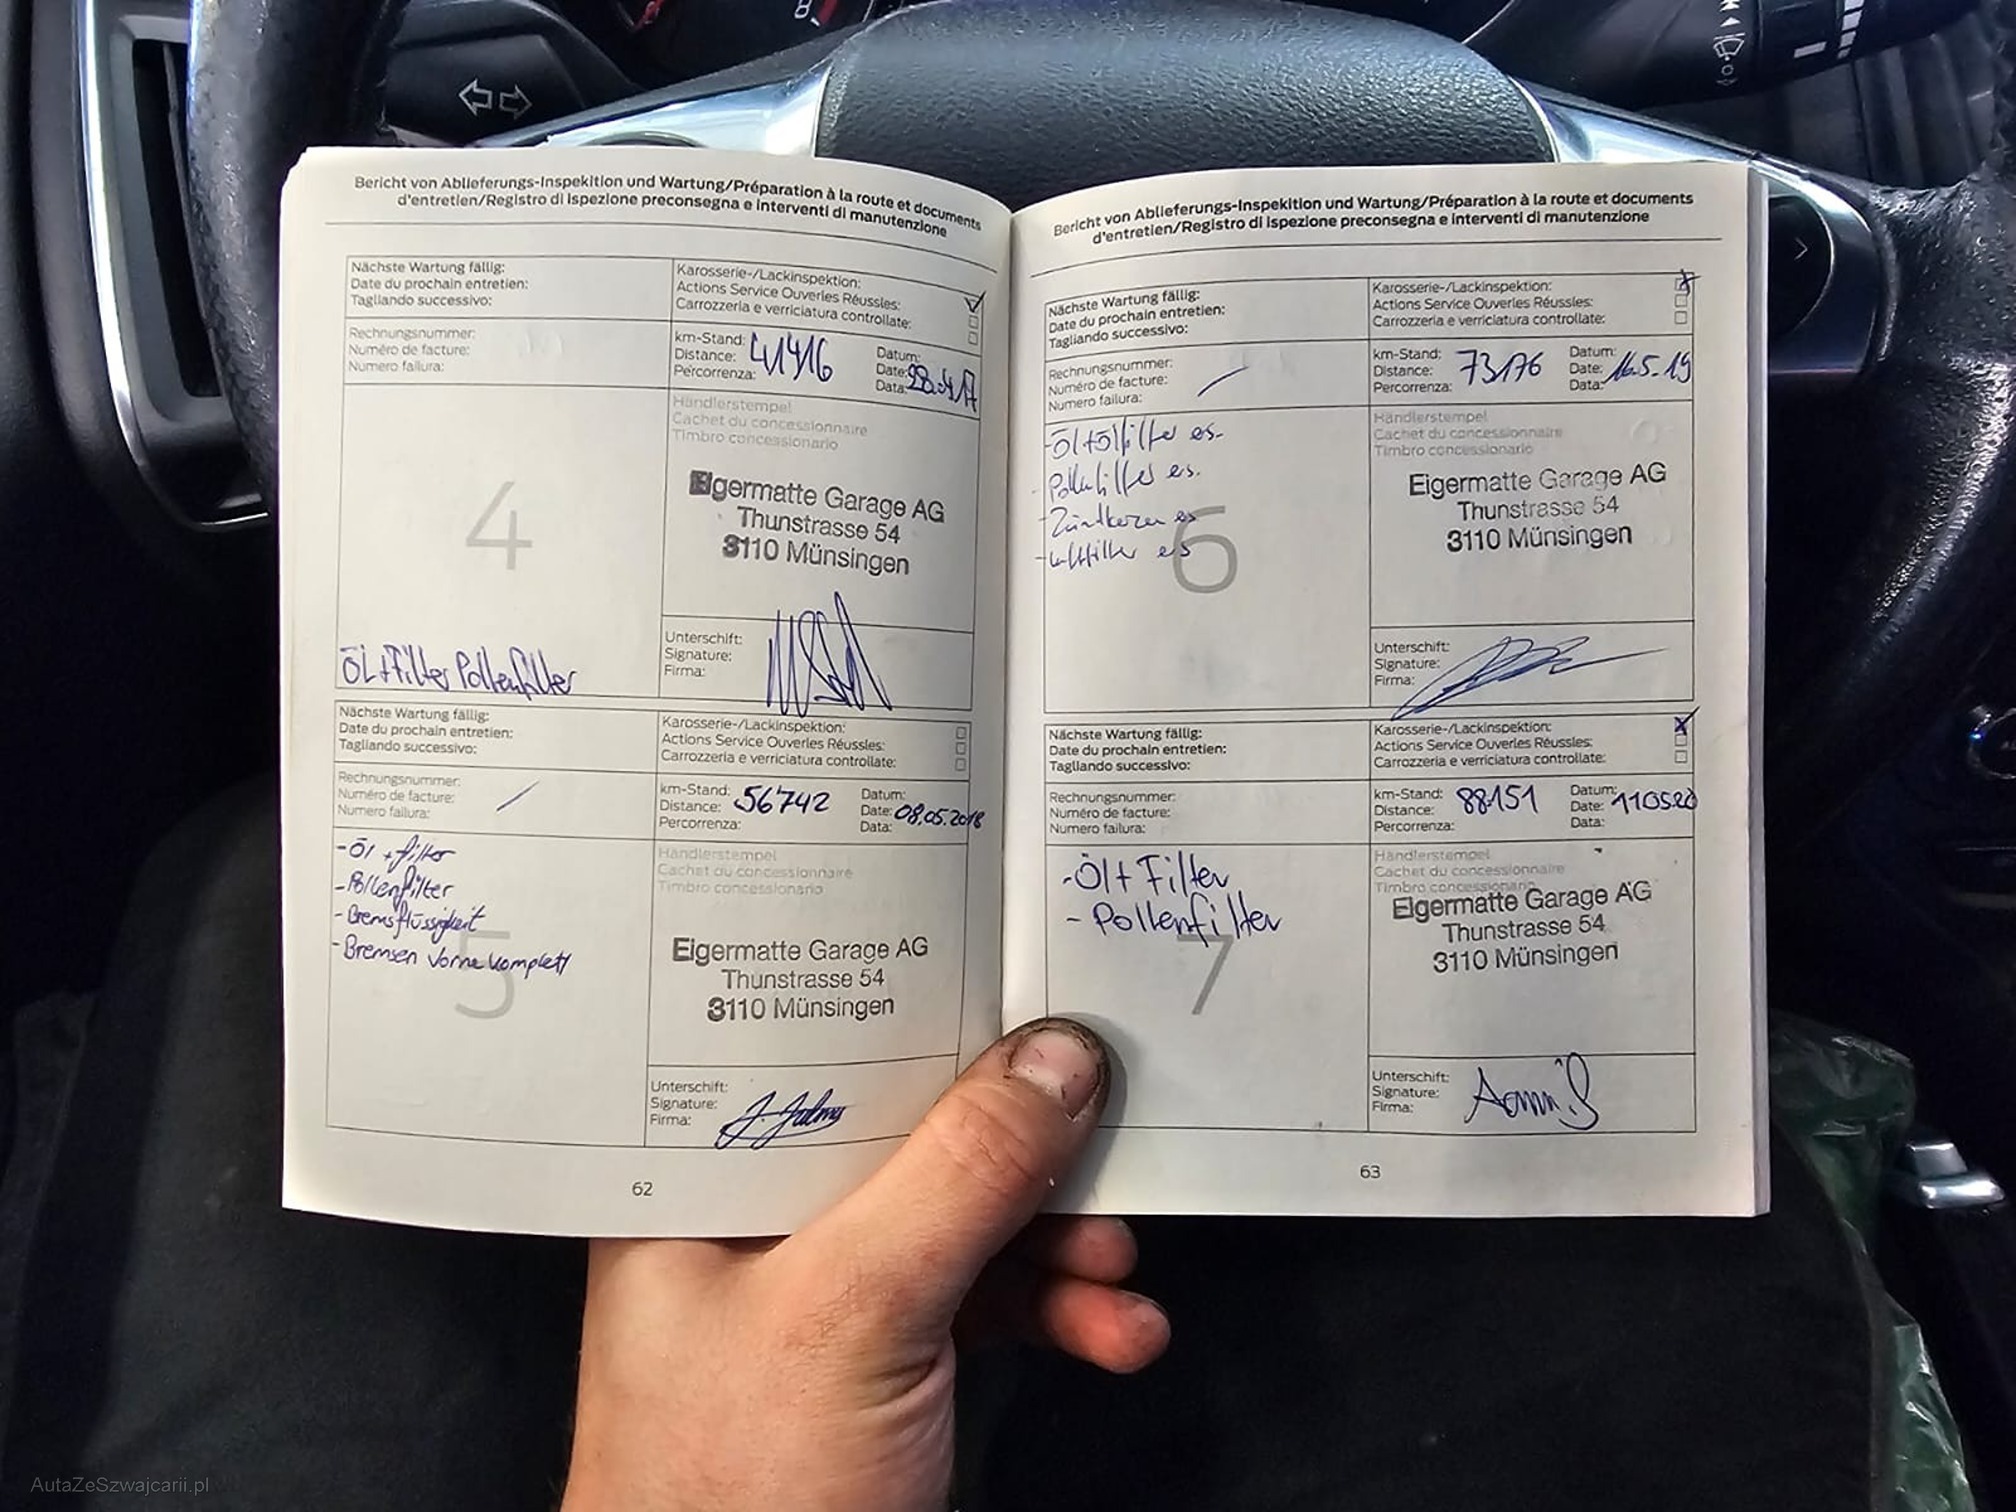 Bericht von Ablieferungs-Inspekition und Wartung/Préparation à la route et documents
d'entretien/Registro di ispezione preconsegna e interventi di manutenzione
Nächste Wartung fällig:
Date du prochain entretien:
Tagliando successivo:
Karosserie-/Lackinspektion:
Actions Service Ouverles Réussles:
Carrozzeria e verriciatura controllate:
Rechnungsnummer:
Numéro de facture:
Numero failura:
km-Stand:
Distance: 41416
Percorrenza:
Datum:
Date:
Data:
4
Händlerstempel
Cachet du concessionnaire
Timbro concessionario
Eigermatte Garage AG
Thunstrasse 54
3110 Münsingen
Öl+Filter Pollenfilter
Unterschift:
Signature:
Firma:
Nächste Wartung fällig:
Date du prochain entretien:
Tagliando successivo:
Karosserie-/Lackinspektion:
Actions Service Ouverles Réussles:
Carrozzeria e verriciatura controllate:
Rechnungsnummer:
Numéro de facture:
Numero failura:
km-Stand:
Distance: 56742
Percorrenza:
Datum:
Date: 08.05.2018
Data:
- Öl + filter
- Pollenfilter
- Bremsflüssigkeit
- Bremsen vorne komplett
5
Händlerstempel
Cachet du concessionnaire
Timbro concessionario
Eigermatte Garage AG
Thunstrasse 54
3110 Münsingen
Unterschift:
Signature:
Firma:
62
Bericht von Ablieferungs-Inspekition und Wartung/Préparation à la route et documents
d'entretien/Registro di ispezione preconsegna e interventi di manutenzione
Nächste Wartung fällig:
Date du prochain entretien:
Tagliando successivo:
Karosserie-/Lackinspektion:
Actions Service Ouverles Réussles:
Carrozzeria e verriciatura controllate:
Rechnungsnummer:
Numéro de facture:
Numero failura:
km-Stand:
Distance: 73176
Percorrenza:
Datum:
Date: 16.5.19
Data:
- Öl+Ölfilter es.
- Pollenfilter es.
- Zündkerzen es
- Luftfilter es
6
Händlerstempel
Cachet du concessionnaire
Timbro concessionario
Eigermatte Garage AG
Thunstrasse 54
3110 Münsingen
Unterschift:
Signature:
Firma:
Nächste Wartung fällig:
Date du prochain entretien:
Tagliando successivo:
Karosserie-/Lackinspektion:
Actions Service Ouverles Réussles:
Carrozzeria e verriciatura controllate:
Rechnungsnummer:
Numéro de facture:
Numero failura:
km-Stand:
Distance: 88151
Percorrenza:
Datum:
Date: 110520
Data:
- Öl+ Filter
- Pollenfilter
7
Händlerstempel
Cachet du concessionnaire
Timbro concessionario
Eigermatte Garage AG
Thunstrasse 54
3110 Münsingen
Unterschift:
Signature:
Firma:
63
AutaZeSzwajcarii.pl